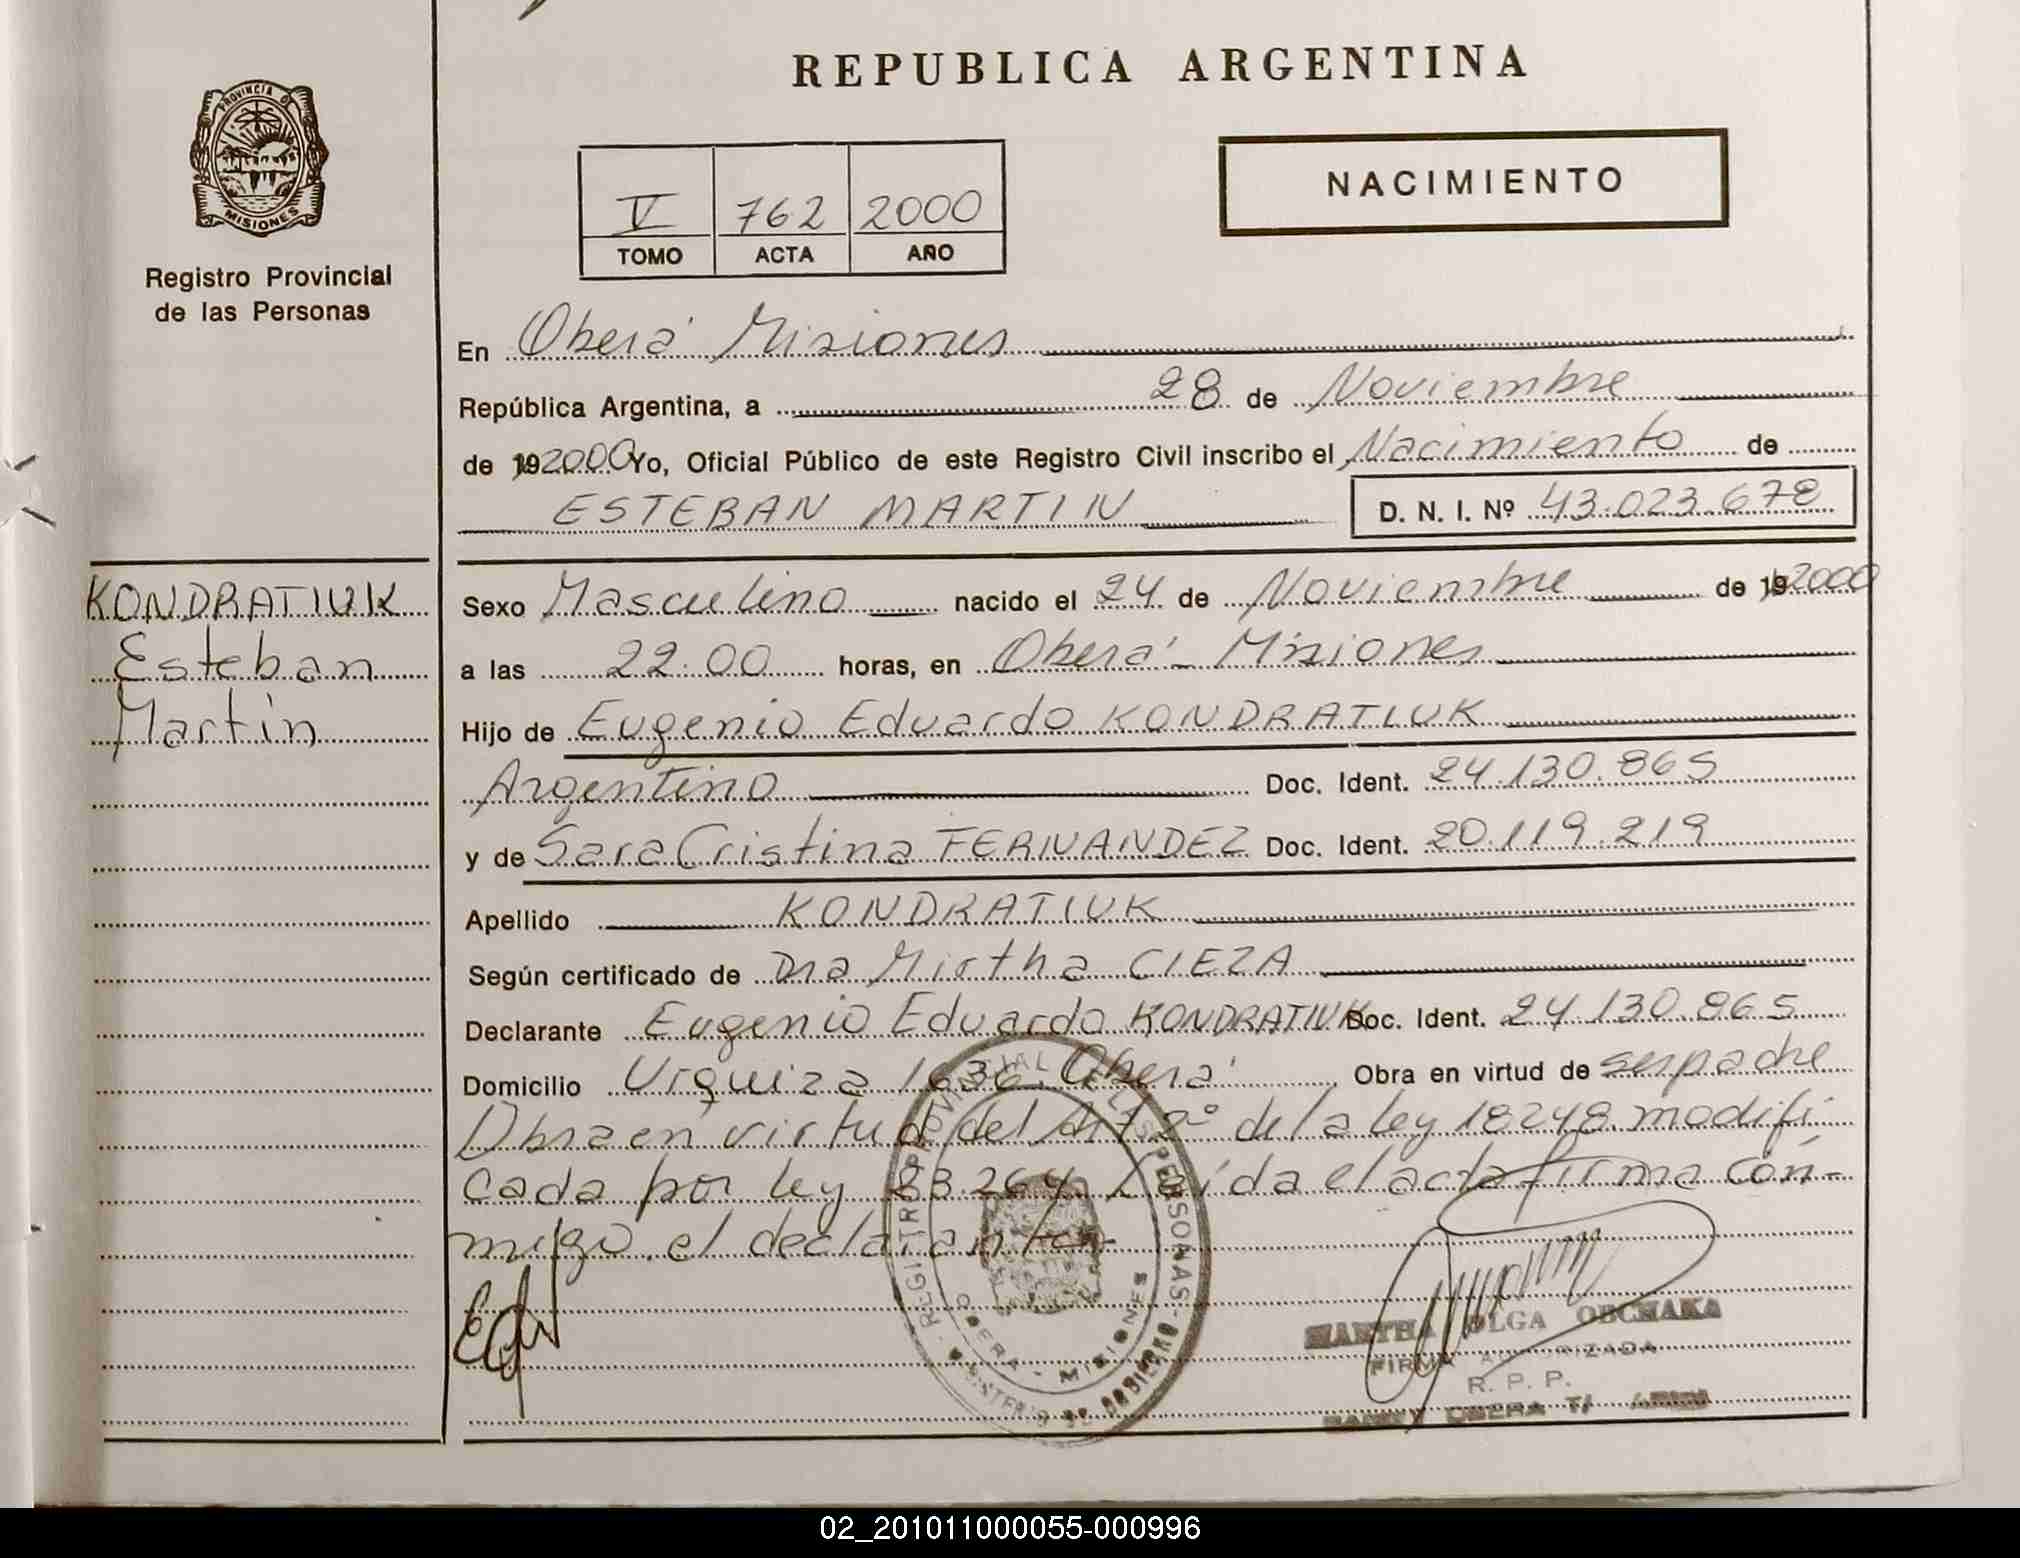 REPUBLICA ARGENTINA
PROVINCIA DE
MISIONES
Registro Provincial
de las Personas
V 762 2000
TOMO ACTA AÑO
NACIMIENTO
En Oberá Misiones
República Argentina, a 28 de Noviembre
de 192000 Yo, Oficial Público de este Registro Civil inscribo el Nacimiento de
ESTEBAN MARTIN D. N. I. Nº 43.023.678
KONDRATIUK
Esteban
Martín
Sexo Masculino nacido el 24 de Noviembre de 192000
a las 22.00 horas, en Oberá - Misiones
Hijo de Eugenio Eduardo KONDRATIUK
Argentino Doc. Ident. 24.130.865
y de Sara Cristina FERNANDEZ Doc. Ident. 20.119.219
Apellido KONDRATIUK
Según certificado de Dra Mirtha CIEZA
Declarante Eugenio Eduardo KONDRATIUK Doc. Ident. 24.130.865
Domicilio Urquiza 1636. Oberá Obra en virtud de ser padre
Obra en virtud del Art 2º de la ley 18248. modifi
cada por ley 23.264. Leída el acta firma con-
migo. el declarante
REGISTRO PROVINCIAL DE LAS PERSONAS
OBERA - MISIONES
MINISTERIO DE GOBIERNO
MARTHA OLGA OBCHAKA
FIRMA AUTORIZADA
R. P. P.
OBERA
02_201011000055-000996